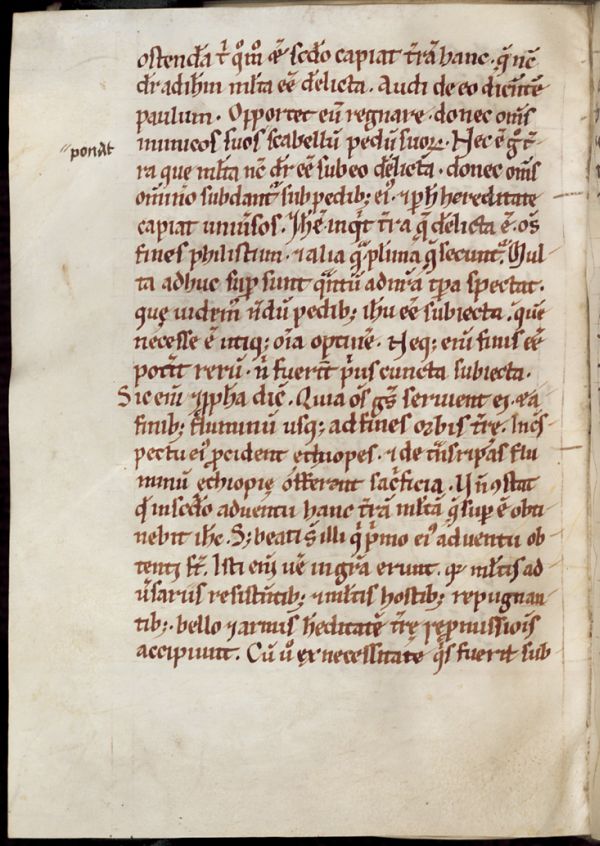 ostendā t̄ q̊m̊ ē sc̄do capiat t̄rā hanc · q̄ nc̄
dr̄ ad ih̄m ml̄ta eē d̄elicta. Audi de eo dicentē
paulum. Oportet eū regnare · donec om̄s
inimicos suos scabellū pedū suoꝝ. Hec ē g̊ t̄r
ra que ml̄ta nc̄ dr̄ eē sub eo d̄elicta · donec om̄s
om̄nino subdant᷑ sub pedib; ei᷒ · ⁊ ꝑ h̄ hereditatē
capiat uniūsos. Ih̄ē inq̄t t̄rra q̄ d̄elicta ē · oēs
fines philistim · ⁊ alia q̄ plurima q̄ secunt᷑. Mul
ta adhuc suꝑsunt q̄ntū ad nr̄a tꝑa spectat ·
quę uidem᷒ n̄dū pedib; ih̄u eē subiecta · quę
necesse ē utiq; oīa optinē · Neq; enī finis eē
potit rerū · n̄ fuerīt p̄us cuncta subiecta.
Sic enī ⁊ ꝓpha dic̄ · Quia oēs gēs seruient ei · ⁊ a
finib; fluminū usq; ad fines orbis t̄rę. In cs̄
pectu ei᷒ ꝓcident ethiopes · ⁊ de t̄nsripas flu
minū ęthiopię offerent sac̄ficia. Un̄ ꝯstat
q̄ in sc̄do aduentu hanc t̄rā ml̄tā q̄ suꝑ ē obti
nebit ih̄c. S; beati s̄ illi q̄ p̄mo ei᷒ aduentu ob
tenti st̄. Isti enī uē in gr̄a erunt · q̄ ml̄tis ad
ūsariis resistentib; ⁊ ml̄tis hostib; repugnan
tib; · bello ⁊ armis h̄editatē t̄rę repmissiois
accipiunt. Cū ů ex necessitate q̄s fuerit sub
ponat